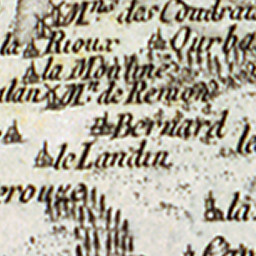 Mns. das Coudrais
la Rioux
Ourba
la Mouline
Mn. de Remon
Bernard
le Landin
la
erouze
la